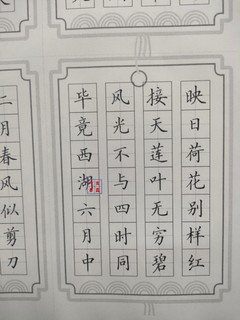 二月春风似剪刀
毕竟西湖六月中
风光不与四时同
接天莲叶无穷碧
映日荷花别样红